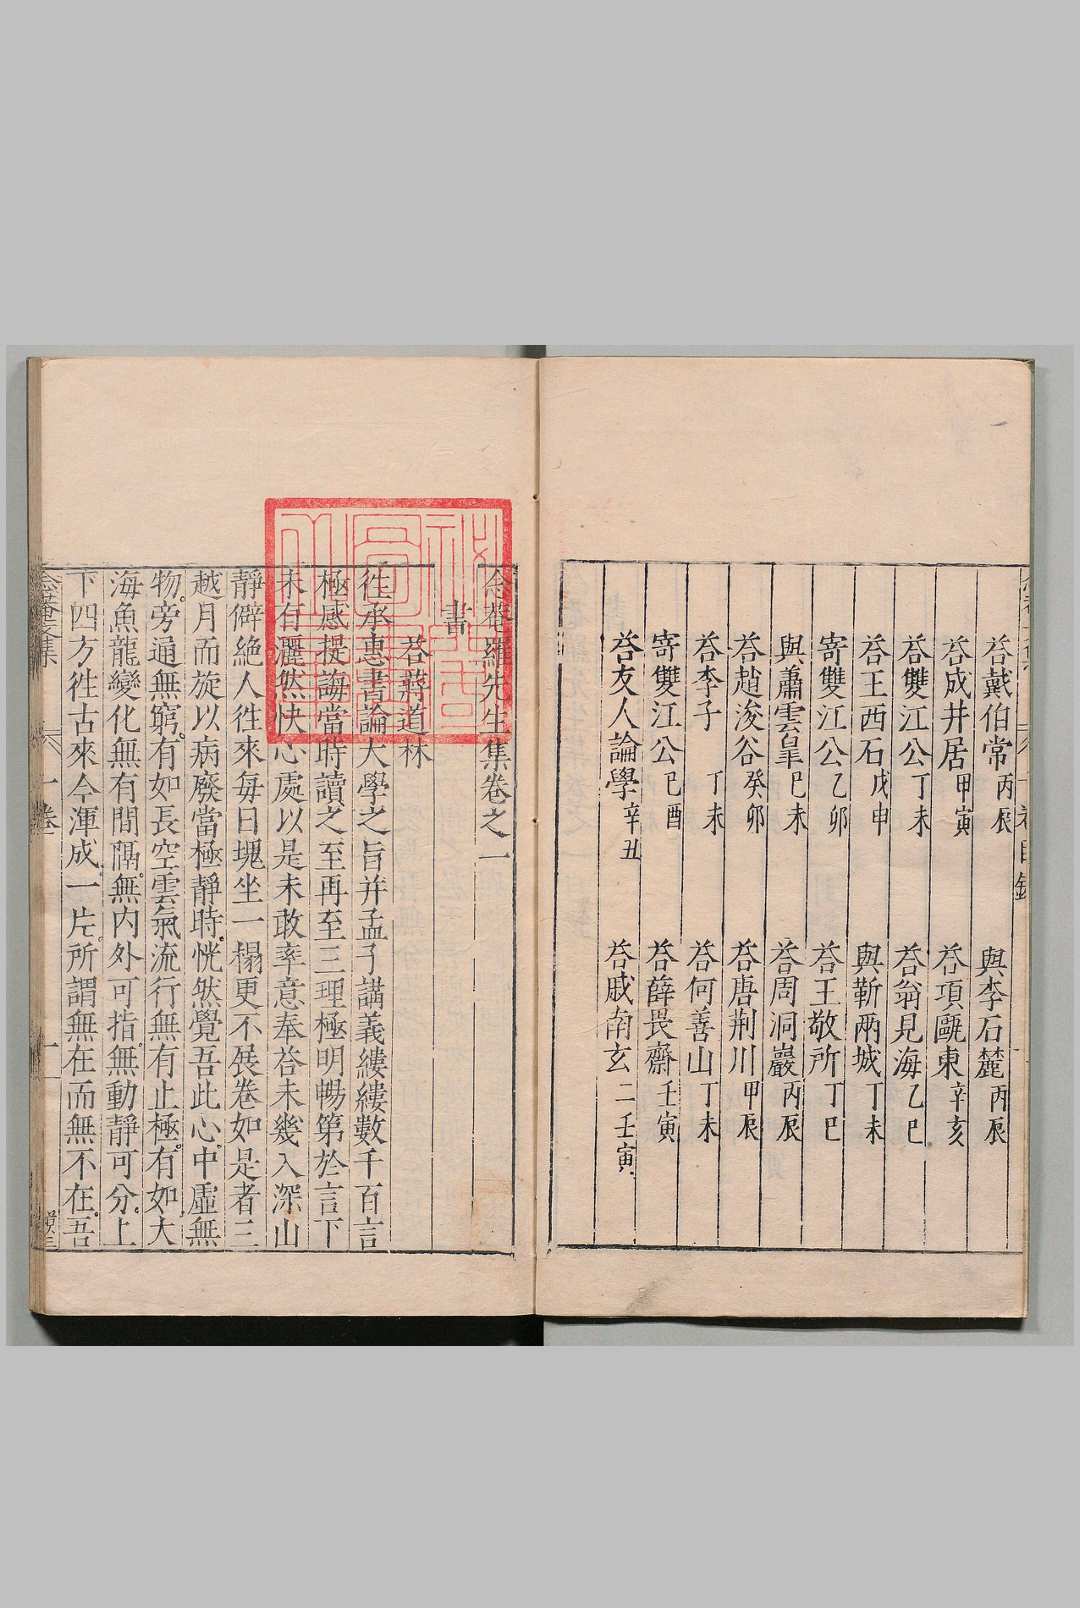 荅戴伯常丙辰 與李石麓丙辰
荅成井居甲寅 荅項甌東辛亥
荅雙江公丁未 荅翁見海乙巳
荅王西石戊申 與靳兩城丁未
寄雙江公乙卯 荅王敬所丁巳
與蕭雲皐己未 荅周洞巖丙辰
荅趙浚谷癸卯 荅唐荆川甲辰
荅李子丁未 荅何善山丁未
寄雙江公己酉 荅薛畏齋壬寅
荅友人論學辛丑 荅戚南玄二壬寅
念菴羅先生集卷之一
書
荅蔣道林
徃承惠書論大學之旨并孟子講義縷縷數千百言
極感提誨當時讀之至再至三理極明暢第於言下
未有灑然快心處以是未敢率意奉荅未幾入深山
靜僻絶人徃來每日塊坐一榻更不展卷如是者三
越月而旋以病廢當極靜時恍然覺吾此心中虛無
物旁通無窮有如長空雲氣流行無有止極有如大
海魚龍變化無有間隔無内外可指無動靜可分上
下四方徃古來今渾成一片所謂無在而無不在吾